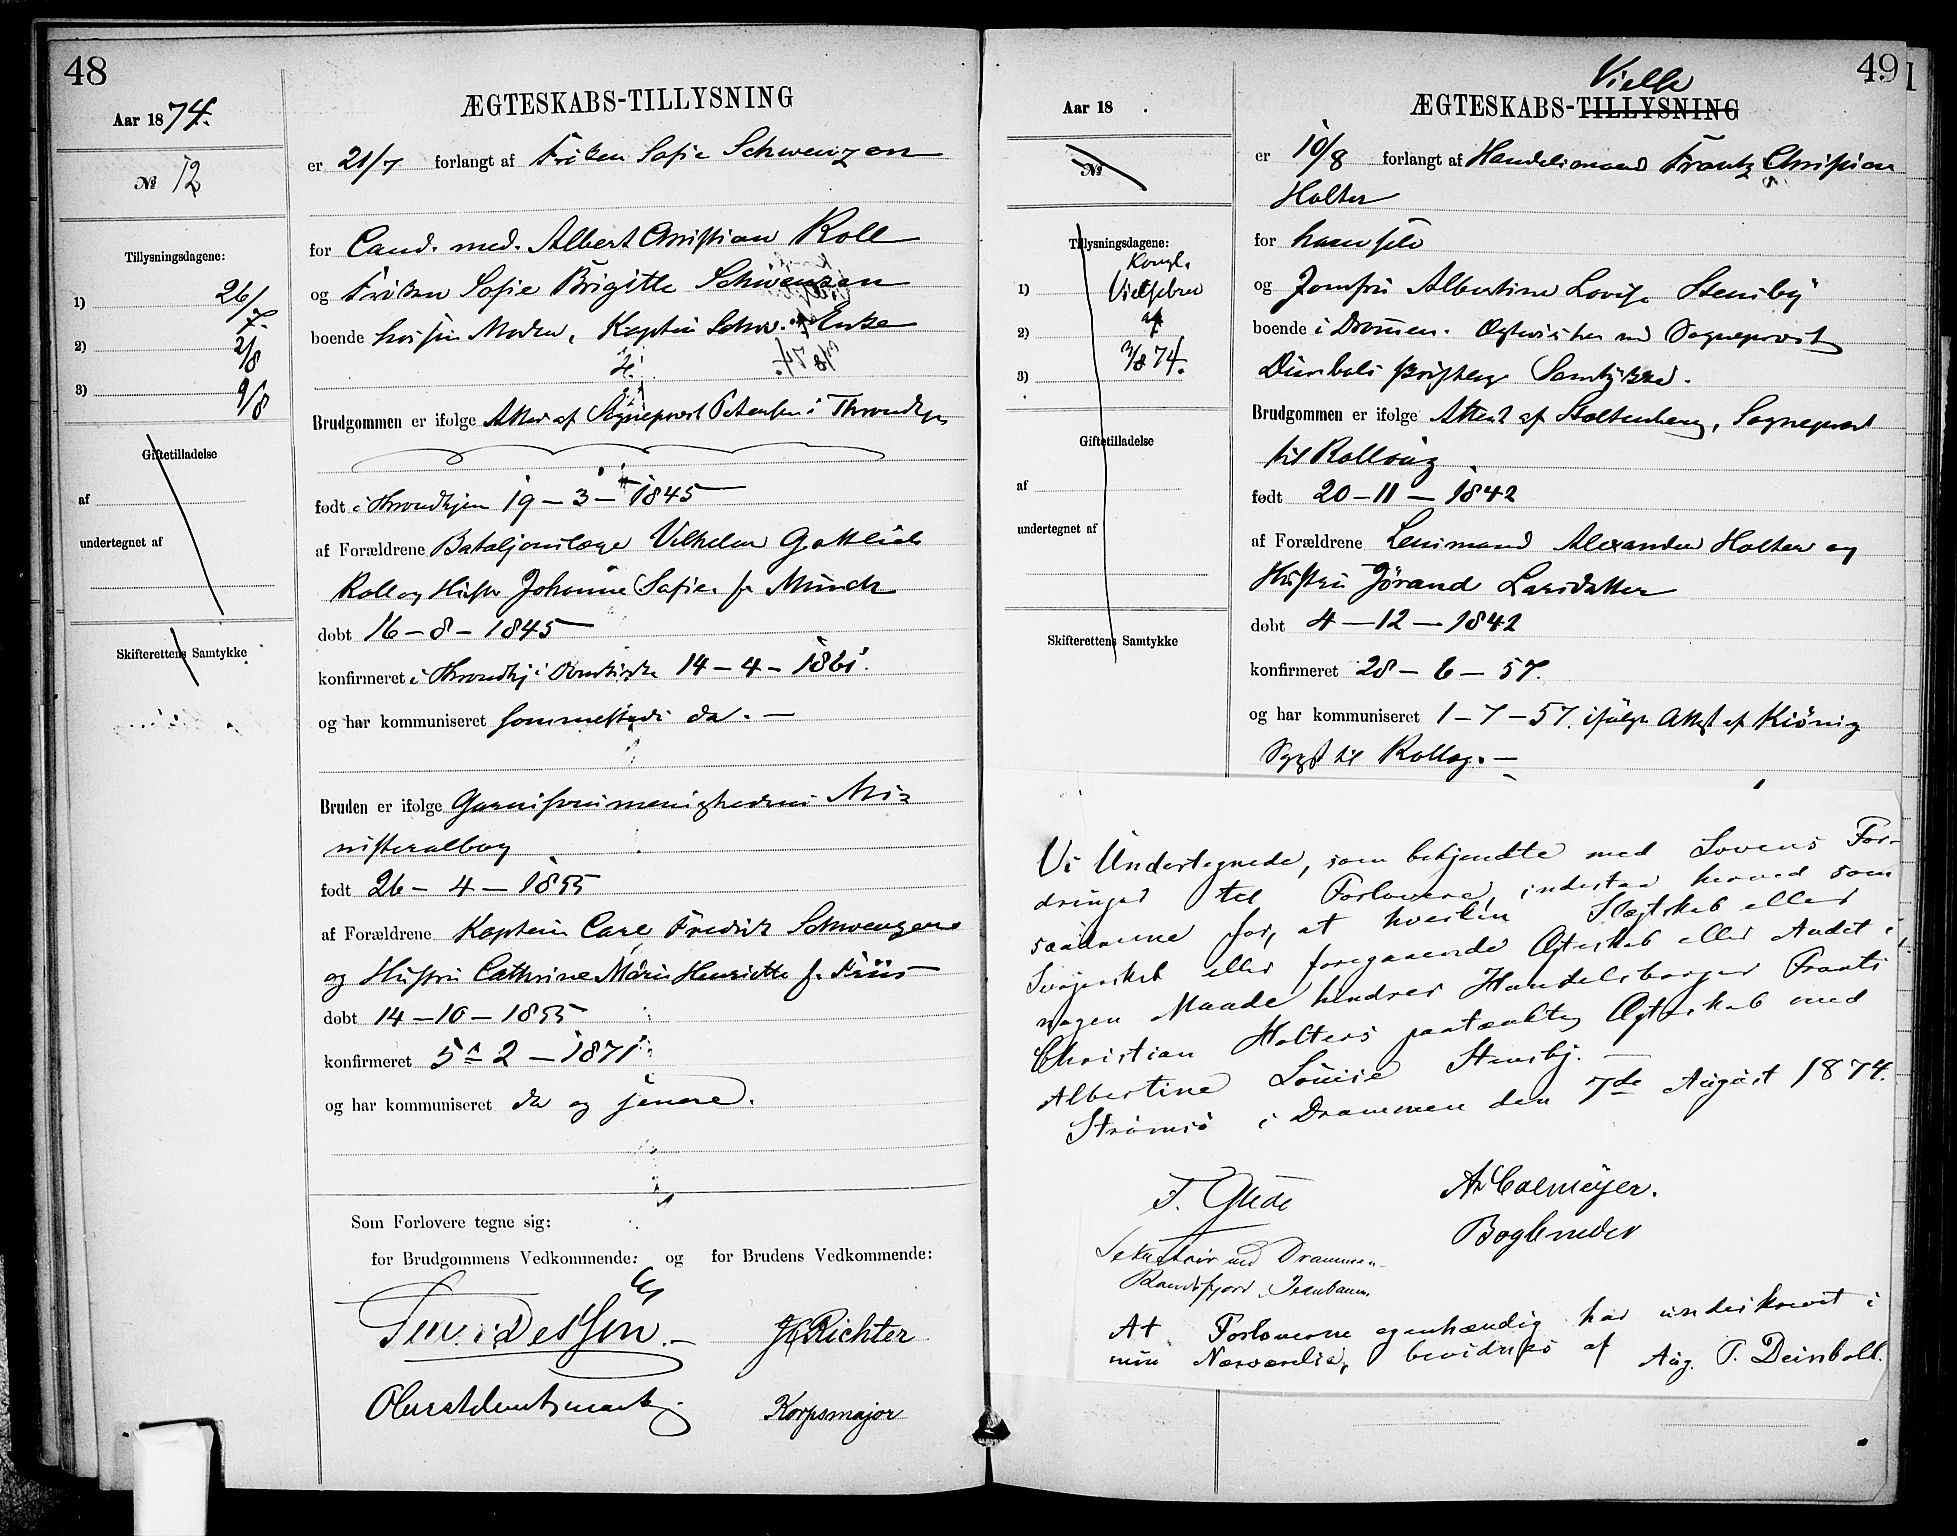 48
Aar 1874.
№ 12
Tillysningsdagene:
1) 26/7.
2) 2/8
3) 9/8
Giftetilladelse
af
undertegnet af
Skifterettens Samtykke
ÆGTESKABS-TILLYSNING
er 21/7 forlangt af Frøken Sofie Schwenzen
for Cand. med. Albert Christian Roll
og Frøken Sofie Brigitte Schwenzen
boende hos sin Moder, Kaptein Schw. Enke
Brudgommen er ifølge Attest af Sogneprest Petersen i Throndhjem
født i Throndhjem 19-3-1845
af Forældrene Bataljonslæge Vilhelm Gottlieb
Roll og Hustru Johanne Sofie f. Münch
døbt 16-8-1845
konfirmeret i Throndhj. Domkirke 14-4-1861.
og har kommuniseret sammesteds da.
Bruden er ifølge Garnisonsmenighedens Mi-
nisterialbog
født 26-4-1855
af Forældrene Kaptein Carl Fredrik Schwenzen
og Hustru Cathrine Marie Henriette f. Friis
døbt 14-10-1855
konfirmeret 5-2-1871
og har kommuniseret da og senere.
Som Forlovere tegne sig:
for Brudgommens Vedkommende: og for Brudens Vedkommende:
Richter
Korpsmajor
49
Aar 18 .
№
Tillysningsdagene:
Kongl.
1) Vielsebrev
2) af
3/8 74.
3)
Giftetilladelse
af
undertegnet af
Skifterettens Samtykke
Vielse
ÆGTESKABS-TILLYSNING
er 10/8 forlangt af Handelsmand Frantz Christian
Holter
for ham selv
og Jomfru Albertine Lovise Stensby
boende i Drammen. Ægtevies her med Sogneprest
Deinbolls skriftlige Samtykke.
Brudgommen er ifølge Attest af Stoltenberg, Sogneprest
til Rollaug
født 20-11-1842
af Forældrene Lensmand Alexander Holter og
Hustru Jørand Larsdatter
døbt 4-12-1842
konfirmeret 28-6-57.
og har kommuniseret 1-7-57. ifølge Attest af Kiönig
Sgpst til Rollag.
Vi Undertegnede, som bekjendte med Lovens For-
dringer til Forlovere, indestaa herved som
saadanne for, at hverken Slægtskab eller
Svogerskab eller foregaaende Ægteskab eller Andet i
nogen Maade hindrer Handelsborger Frants
Christian Holters paatænkte Ægteskab med
Albertine Louise Stensby.
Strømsø i Drammen den 7de August 1874.
T. Gude
Sekretair ved Drammen-
Randsfjord Jernbanen.
Colmeyer.
Boghandler
At Forloverne egenhændig har underskrevet i
min Nærværelse, bevidnes af Aug. T. Deinboll.